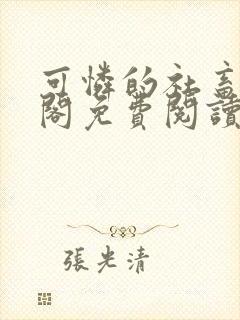 可憐的社畜
閣免費閱讀
張光清